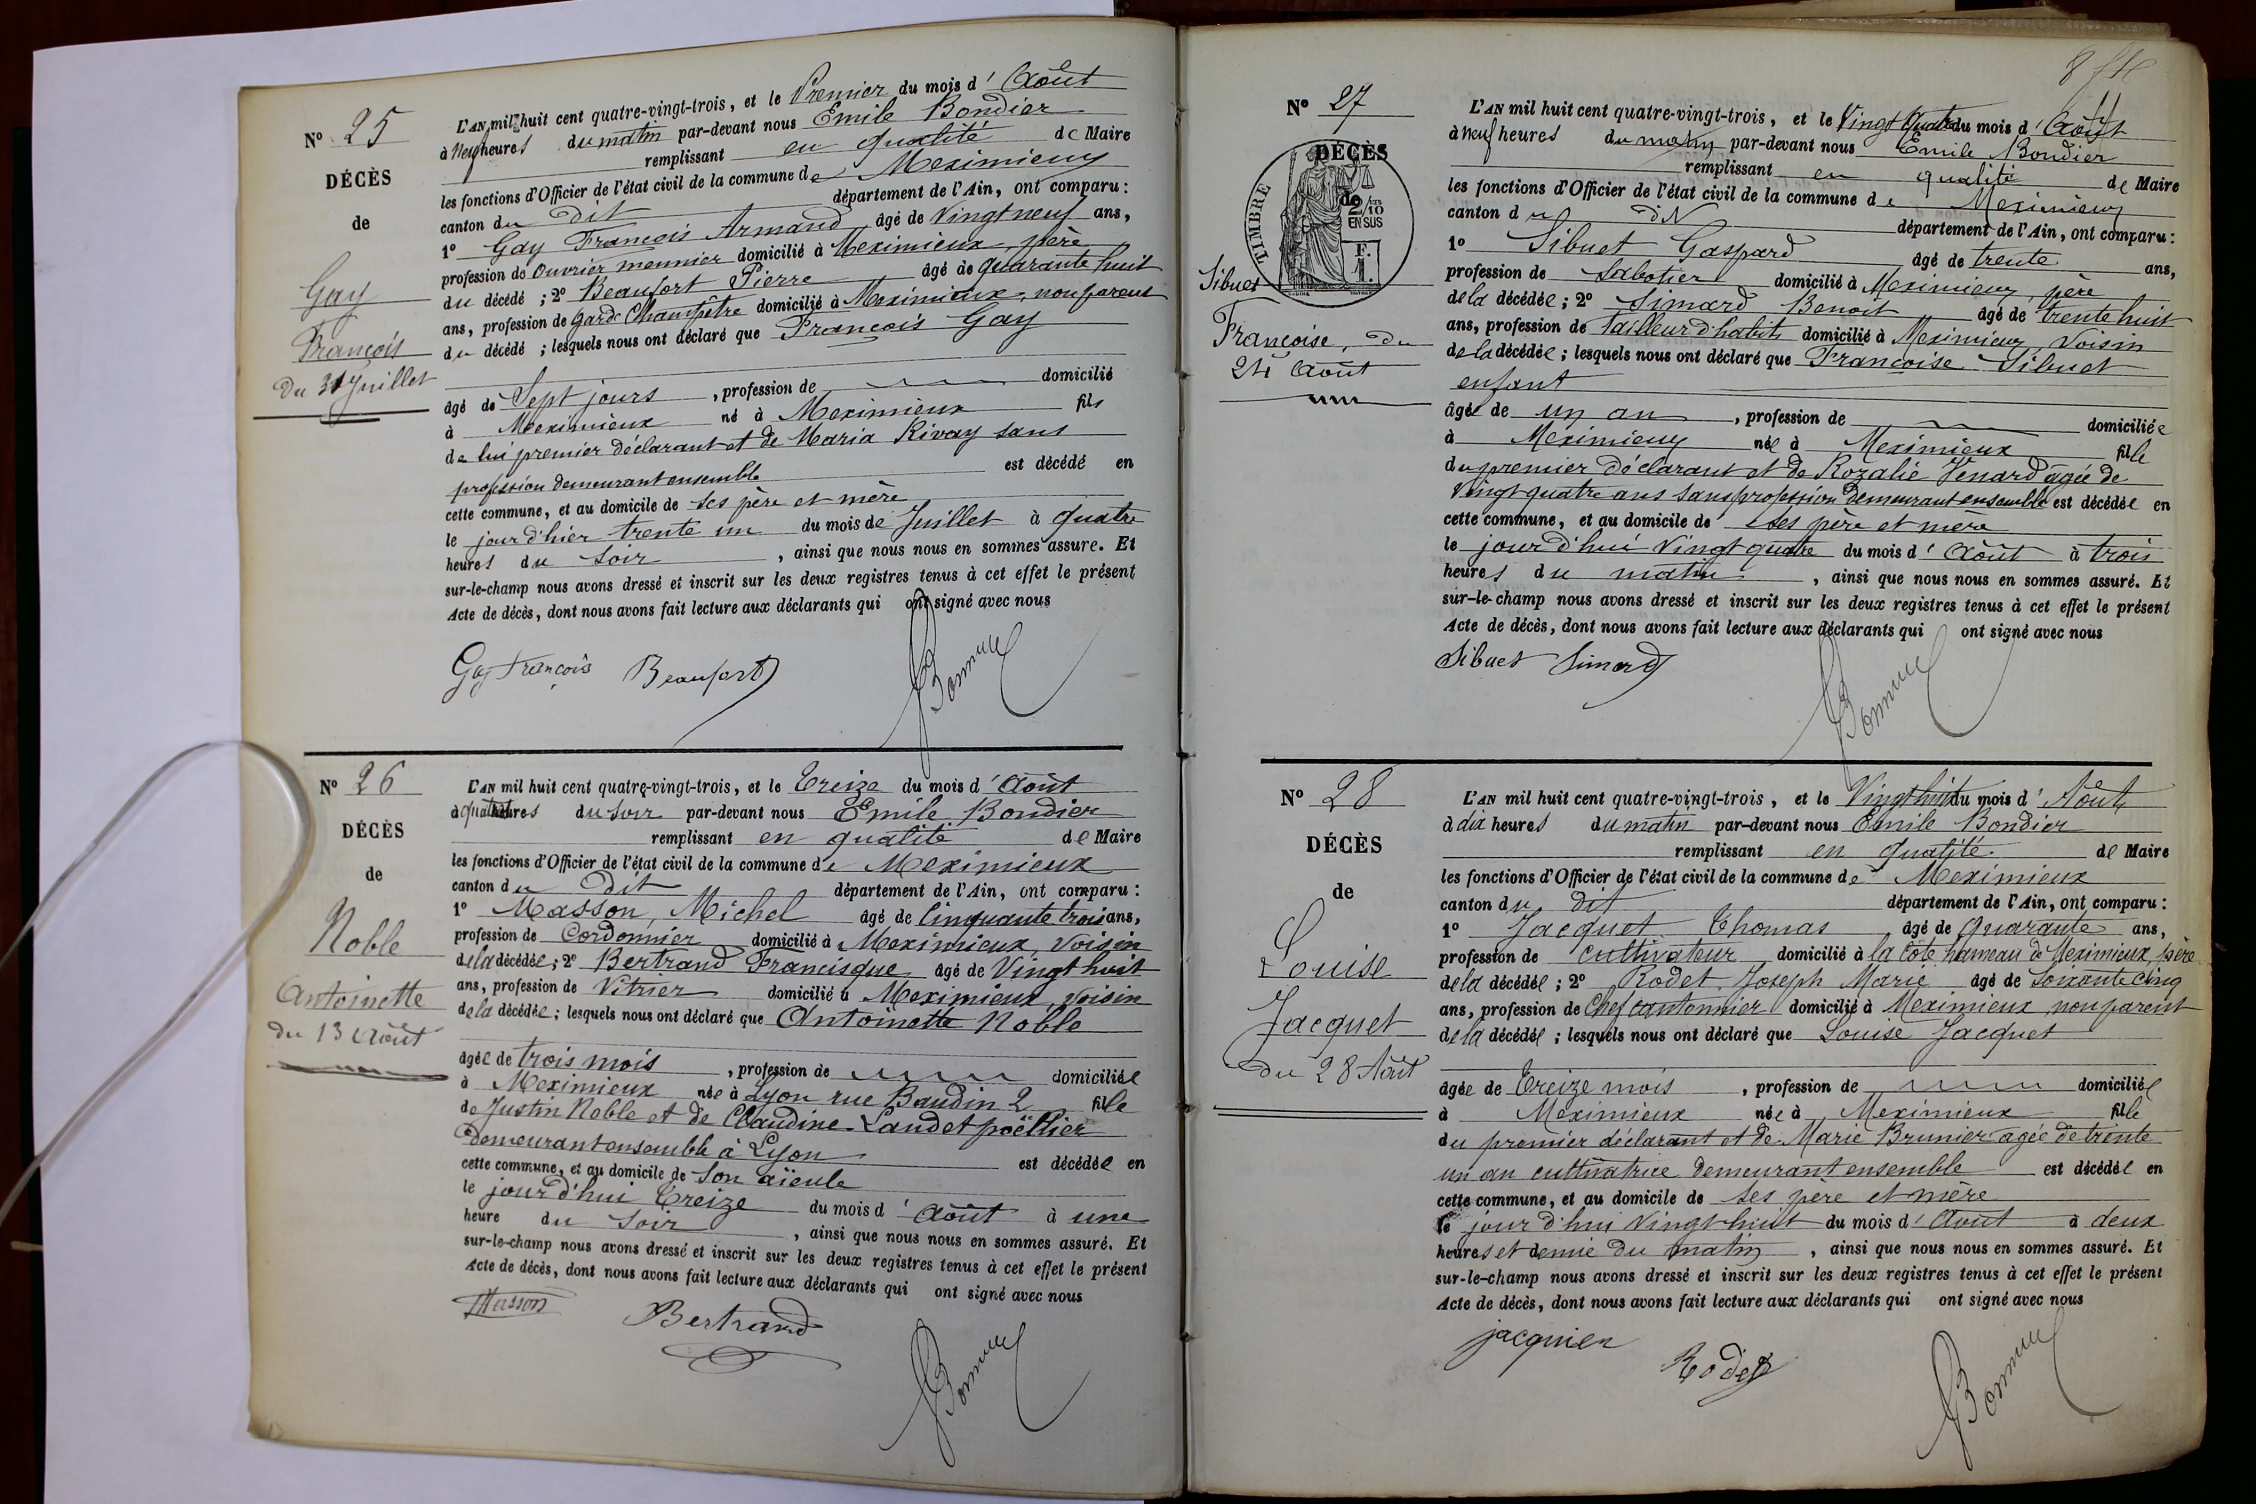 N° 25
DÉCÈS
de
Gay
François
Du 31 Juillet
L'AN mil huit cent quatre-vingt-trois, et le Premier du mois d'Août
à neuf heures du matin par-devant nous Emile Bondier
remplissant en qualité de Maire
les fonctions d'Officier de l'état civil de la commune de Meximieux
canton du dit département de l'Ain, ont comparu :
1° Gay François Armand âgé de Vingt neuf ans,
profession de Ouvrier meunier domicilié à Meximieux, père
du décédé ; 2° Beaufort Pierre âgé de quarante huit
ans, profession de garde Champêtre domicilié à Meximieux, non parent
du décédé ; lesquels nous ont déclaré que François Gay
âgé de Sept jours, profession de domicilié
à Meximieux né à Meximieux fils
de lui premier déclarant et de Maria Rivay sans
profession demeurant ensemble est décédé en
cette commune, et au domicile de ses père et mère
le jour d'hier trente un du mois de Juillet à quatre
heures du soir, ainsi que nous nous en sommes assuré. Et
sur-le-champ nous avons dressé et inscrit sur les deux registres tenus à cet effet le présent
Acte de décès, dont nous avons fait lecture aux déclarants qui ont signé avec nous
Gay François Beaufort
N° 26
DÉCÈS
de
Noble
Antoinette
du 13 Août
L'AN mil huit cent quatre-vingt-trois, et le Treize du mois d'Août
à quatre heures du soir par-devant nous Emile Bondier
remplissant en qualité de Maire
les fonctions d'Officier de l'état civil de la commune de Meximieux
canton du dit département de l'Ain, ont comparu :
1° Masson, Michel âgé de Cinquante trois ans,
profession de Cordonnier domicilié à Meximieux, voisin
de la décédée ; 2° Bertrand Francisque âgé de Vingt huit
ans, profession de Vitrier domicilié à Meximieux, voisin
de la décédée ; lesquels nous ont déclaré que Antoinette Noble
âgée de trois mois, profession de domiciliée
à Meximieux née à Lyon rue Baudin 2 fille
de Justin Noble et de Claudine Landet poëllier
demeurant ensemble à Lyon est décédée en
cette commune, et au domicile de son aïeule
le jour d'hui Treize du mois d'Août à une
heure du soir, ainsi que nous nous en sommes assuré. Et
sur-le-champ nous avons dressé et inscrit sur les deux registres tenus à cet effet le présent
Acte de décès, dont nous avons fait lecture aux déclarants qui ont signé avec nous
Masson Bertrand
N° 27
DÉCÈS
de
TIMBRE
2/10 EN SUS
F. 1.
Sibuet
Françoise, du
24 Août
L'AN mil huit cent quatre-vingt-trois, et le Vingt quatre du mois d'Août
à neuf heures du matin par-devant nous Emile Bondier
remplissant en qualité de Maire
les fonctions d'Officier de l'état civil de la commune de Meximieux
canton du dit département de l'Ain, ont comparu :
1° Sibuet Gaspard âgé de trente ans,
profession de Sabotier domicilié à Meximieux, père
de la décédée ; 2° Simard Benoit âgé de trente huit
ans, profession de Tailleur d'habits domicilié à Meximieux, voisin
de la décédée ; lesquels nous ont déclaré que Françoise Sibuet
enfant
âgée de un an, profession de domiciliée
à Meximieux née à Meximieux fille
du premier déclarant et de Rozalie Venard agée de
vingt quatre ans sans profession demeurant ensemble est décédée en
cette commune, et au domicile de ses père et mère
le jour d'hui Vingt quatre du mois d'Août à trois
heures du matin, ainsi que nous nous en sommes assuré. Et
sur-le-champ nous avons dressé et inscrit sur les deux registres tenus à cet effet le présent
Acte de décès, dont nous avons fait lecture aux déclarants qui ont signé avec nous
Sibuet Simard
N° 28
DÉCÈS
de
Louise
Jacquet
du 28 Août
L'AN mil huit cent quatre-vingt-trois, et le Vingt huit du mois d'Août
à dix heures du matin par-devant nous Emile Bondier
remplissant en qualité de Maire
les fonctions d'Officier de l'état civil de la commune de Meximieux
canton du dit département de l'Ain, ont comparu :
1° Jacquet Thomas âgé de quarante ans,
profession de cultivateur domicilié à la Côte hameau de Meximieux, père
de la décédée ; 2° Rodet Joseph Marie âgé de Soixante cinq
ans, profession de Chef cantonnier domicilié à Meximieux non parent
de la décédée ; lesquels nous ont déclaré que Louise Jacquet
âgée de Treize mois, profession de domiciliée
à Meximieux née à Meximieux fille
du premier déclarant et de Marie Brunier agée de trente
un an cultivatrice demeurant ensemble est décédée en
cette commune, et au domicile de ses père et mère
le jour d'hui Vingt huit du mois d'Août à deux
heures et demie du matin, ainsi que nous nous en sommes assuré. Et
sur-le-champ nous avons dressé et inscrit sur les deux registres tenus à cet effet le présent
Acte de décès, dont nous avons fait lecture aux déclarants qui ont signé avec nous
jacquier Rodet